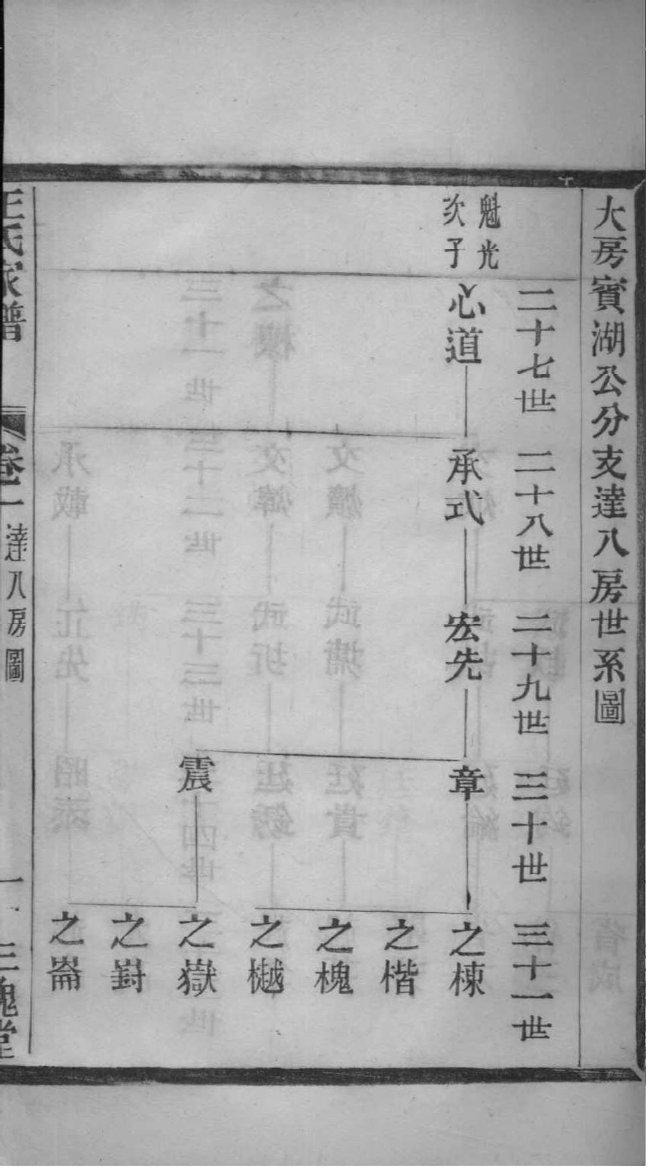 大房賓湖公分支達八房世系圖
二十七世
二十八世
二十九世
三十世
三十一世
魁光
次子
心道
承式
宏先
章
震
之棟
之楷
之槐
之樾
之嶽
之崶
之崙
王氏家譜
卷一
達八房圖
一
三槐堂